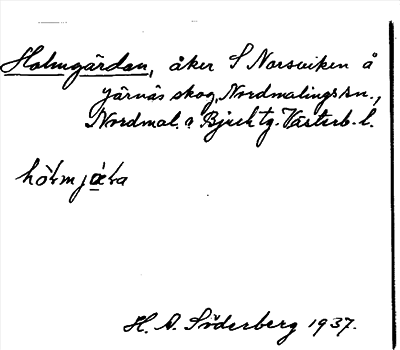 Holmgärdan, åker S Norsviken å
Järnäs skog, Nordmalings sn.,
Nordmal. o. Bjurh tg. Västerb. l.
H. A. Söderberg 1937.